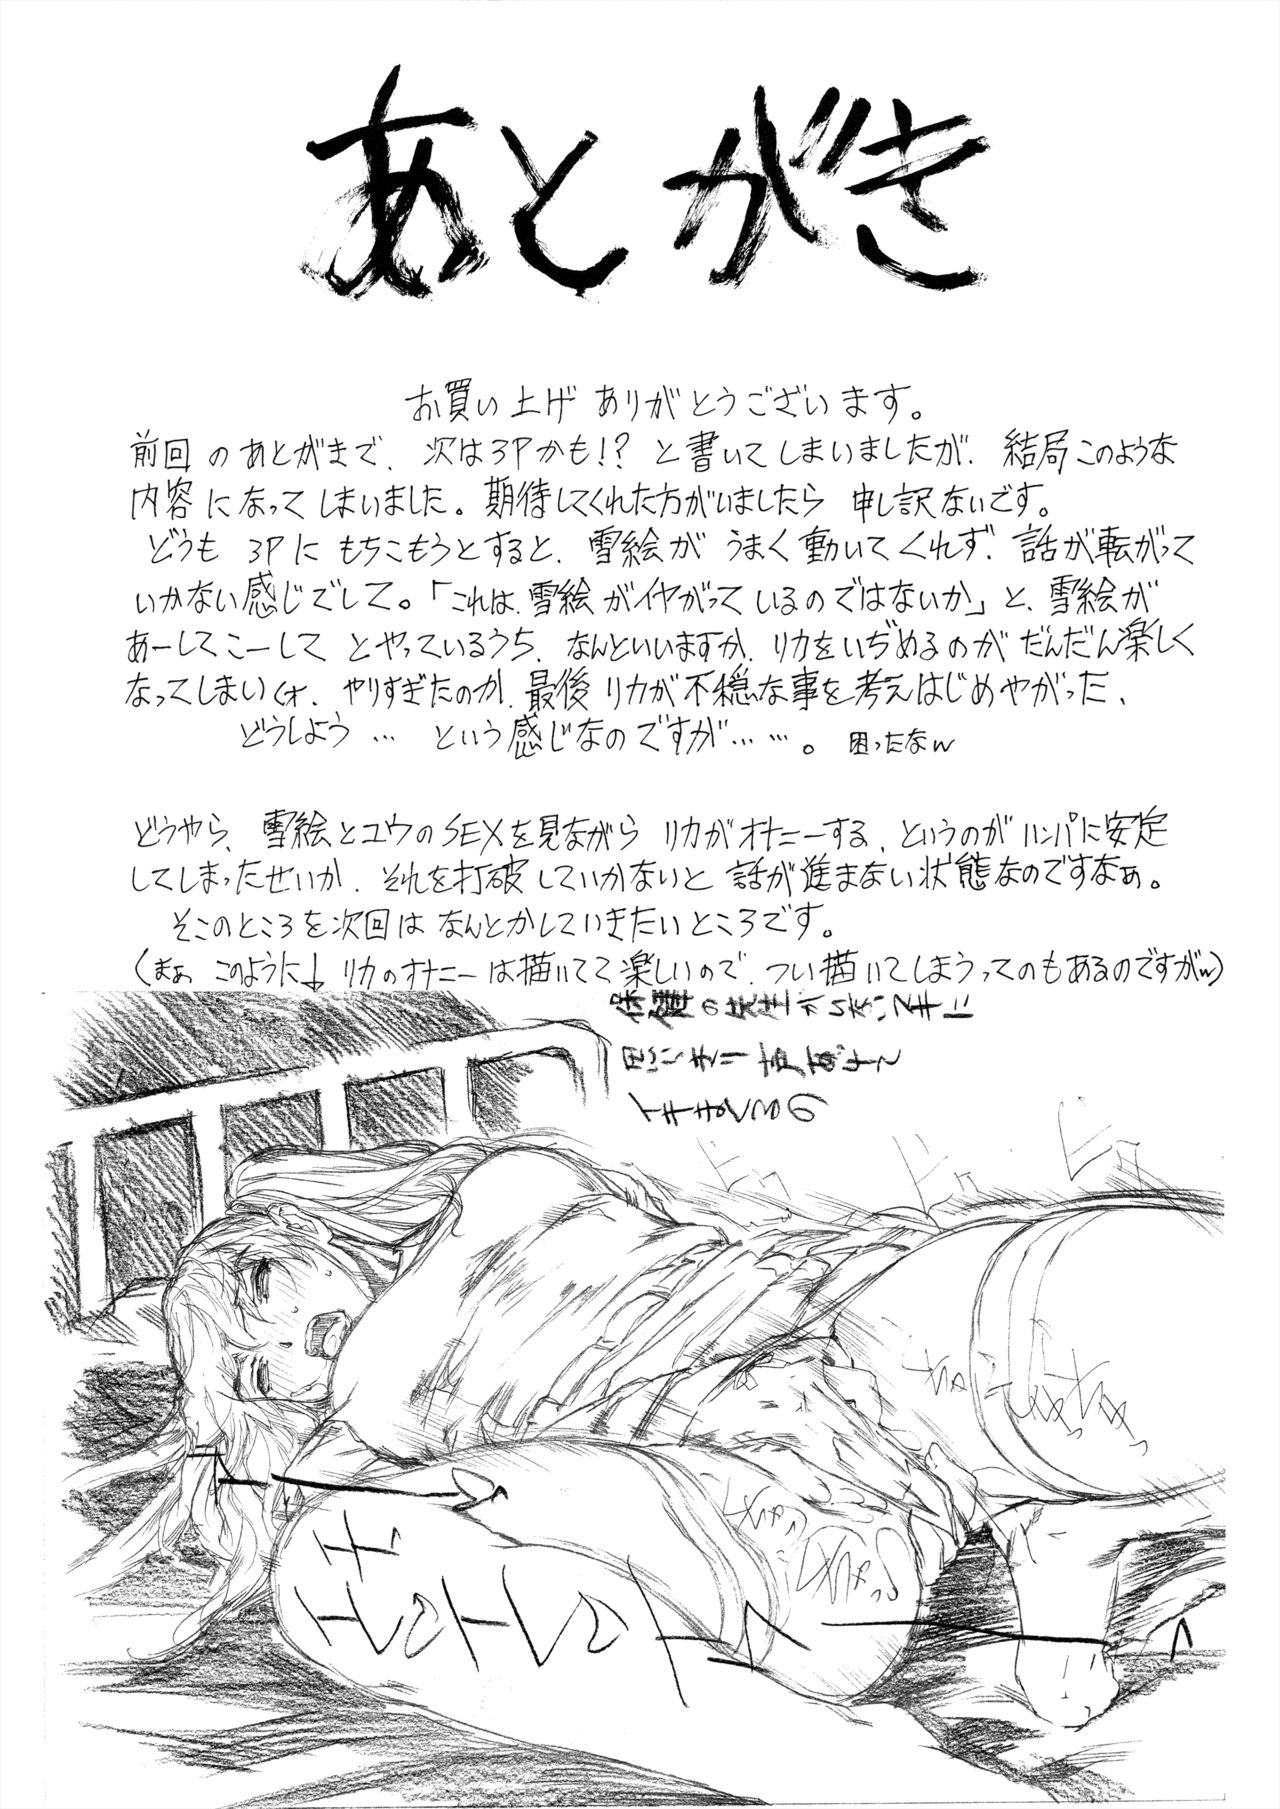 あとがき
お買い上げ ありがとうございます。
前回のあとがきで、次は3Pかも!? と書いてしまいましたが、結局このような
内容になってしまいました。期待してくれた方がいましたら 申し訳ないです。
どうも 3Pに もちこもうとすると、雪絵が うまく動いてくれず、話が転がって
いかない感じでして。「これは、雪絵がイヤがっているのではないか」と、雪絵が
あーしてこーして とやっているうち、なんといいますか、リカをいぢめるのが だんだん楽しく
なってしまい、やりすぎたのか、最後 リカが不穏な事を考えはじめやがった、
どうしよう… という感じなのですが……。困ったなw
どうやら、雪絵とユウのSEXを見ながら リカがオナニーする、というのがハンパに安定
してしまったせいか、それを打破していかないと 話が進まない状態なのですなぁ。
そこのところを次回は なんとかしていきたいところです。
(まぁ このように↓ リカのオナニーは描いてて楽しいので、つい描いてしまうってのもあるのですがw)